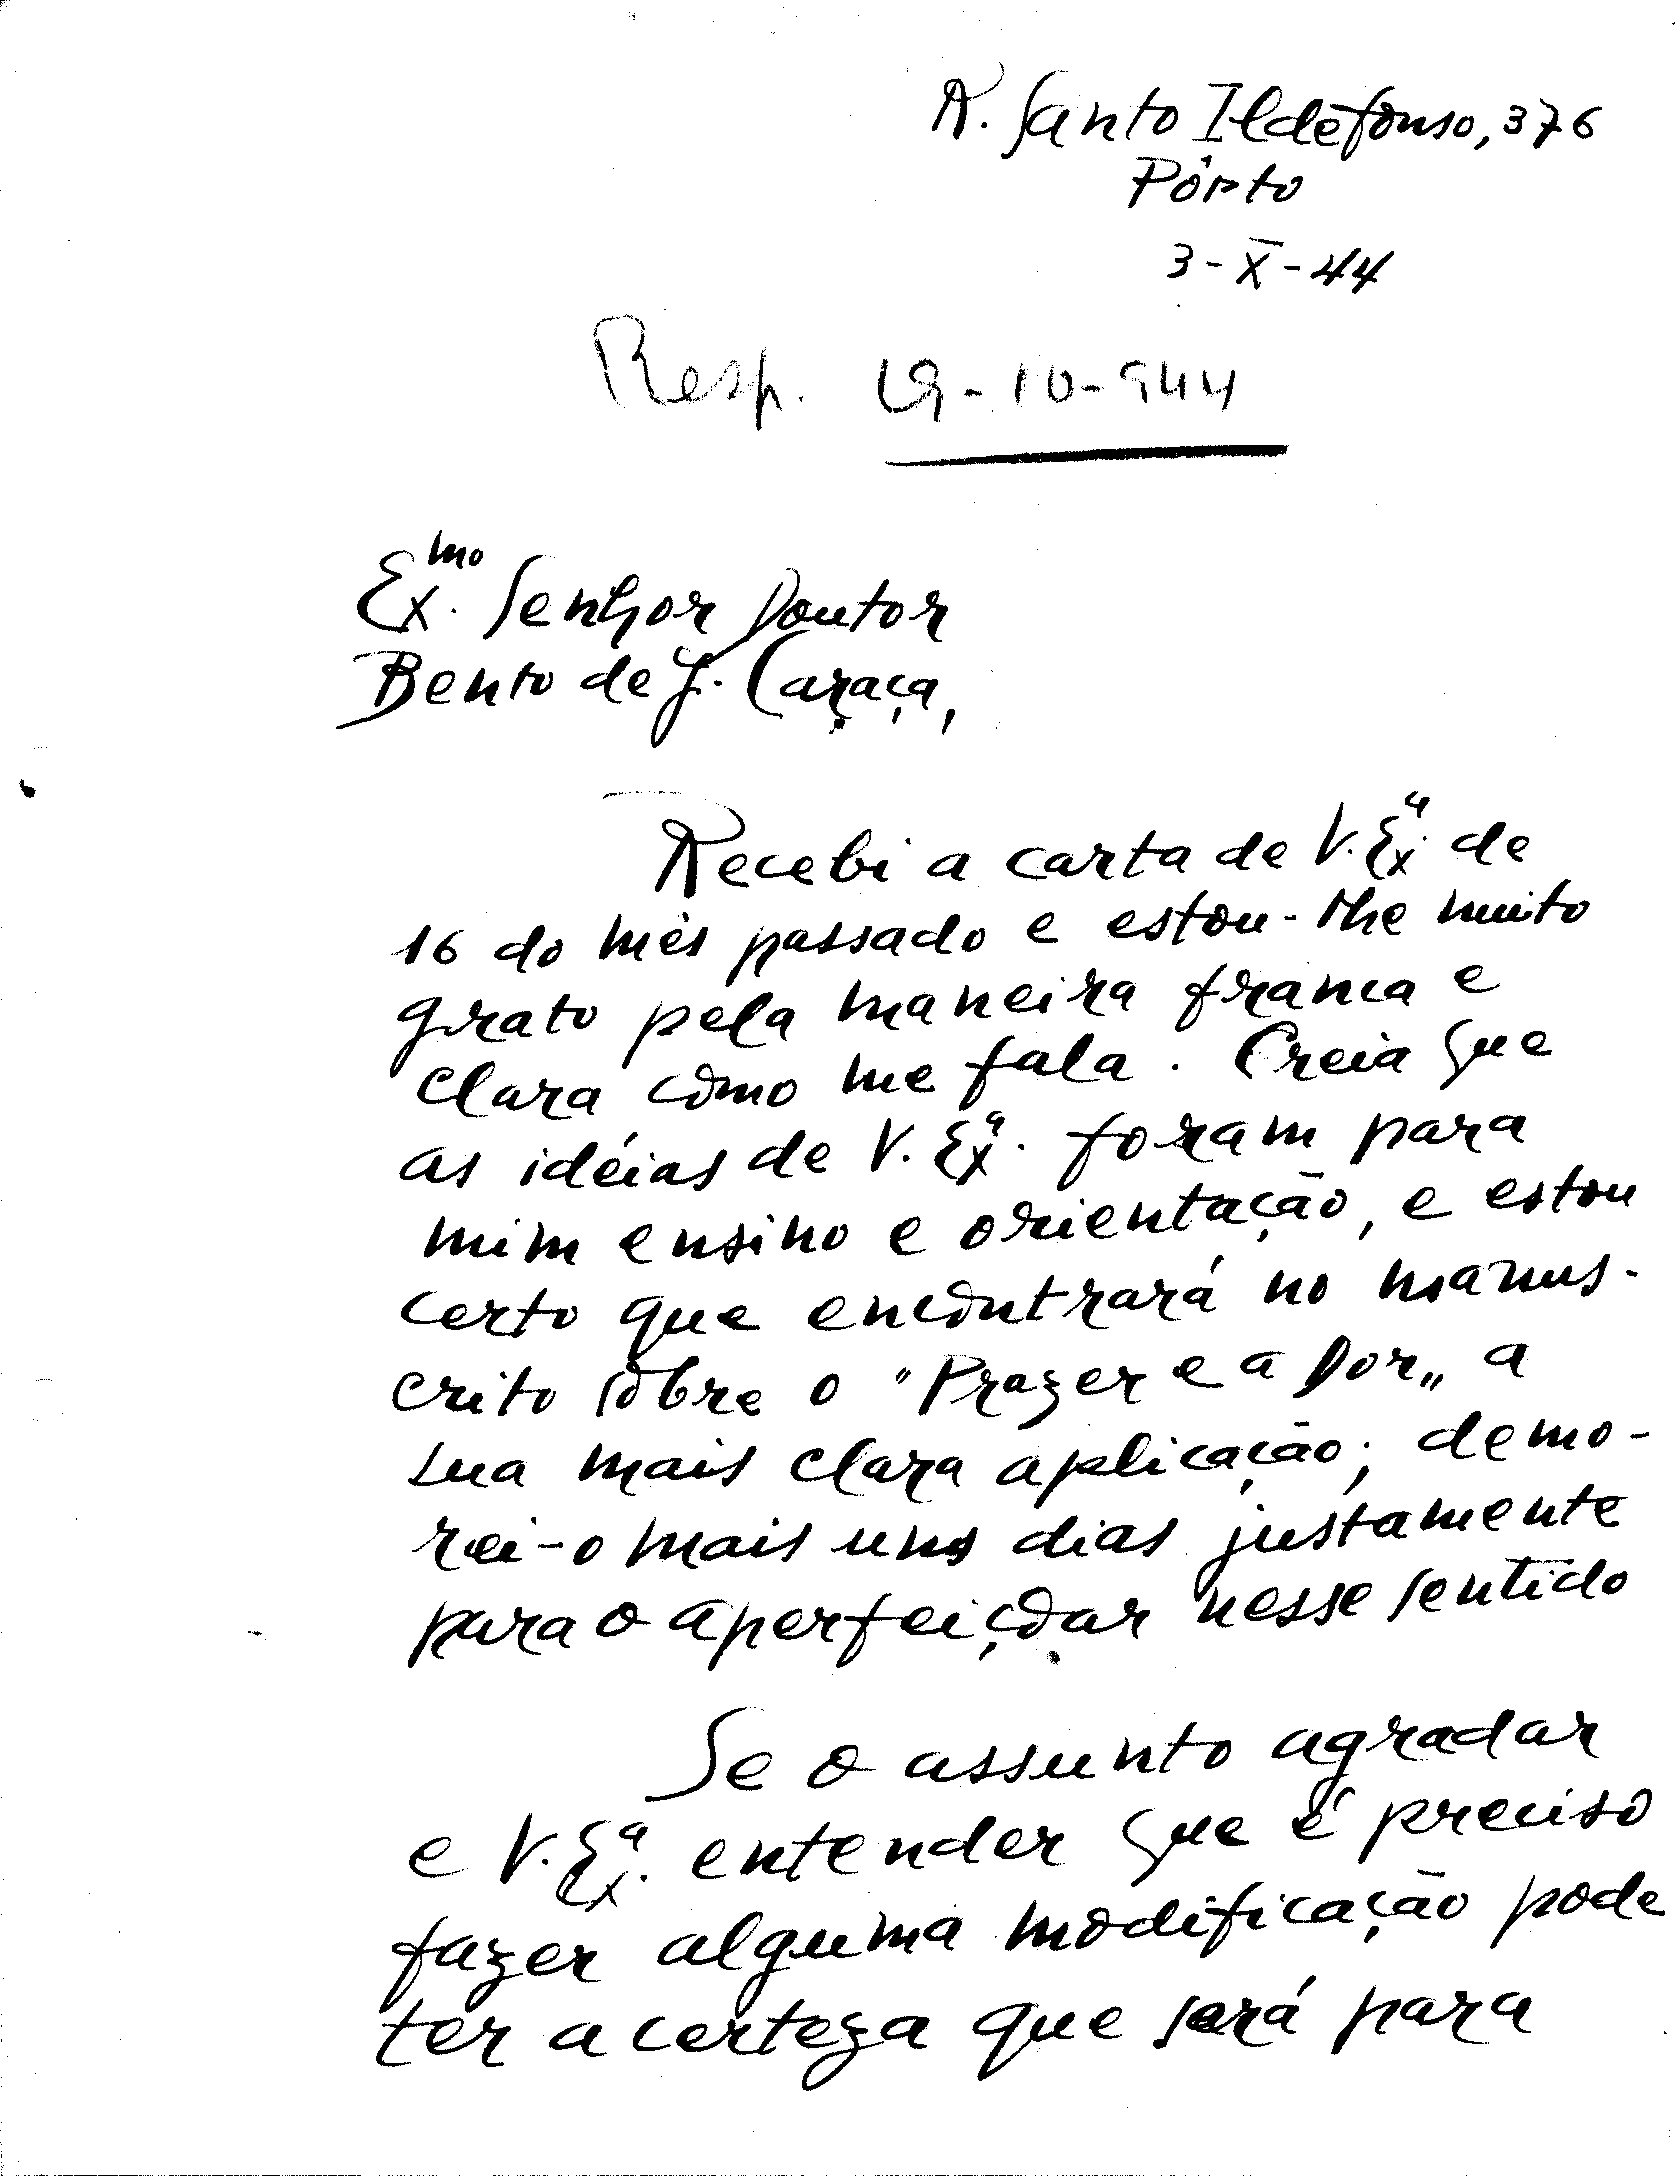 R. Santo Ildefonso, 376
Pôrto
3-X-44
Resp. 19-10-944
Exmo. Senhor Doutor
Bento de J. Caraça,
Recebi a carta de V. Exa. de
16 do mês passado e estou-lhe muito
grato pela maneira franca e
clara como me fala. Creia que
as idéias de V. Exa. foram para
mim ensino e orientação, e estou
certo que encontrará no manus-
crito sôbre o "Prazer e a Dor" a
sua mais clara aplicação; demo-
rei-o mais uns dias justamente
para o aperfeiçoar nesse sentido
Se o assunto agradar
e V. Exa. entender que é preciso
fazer alguma modificação pode
ter a certeza que será para